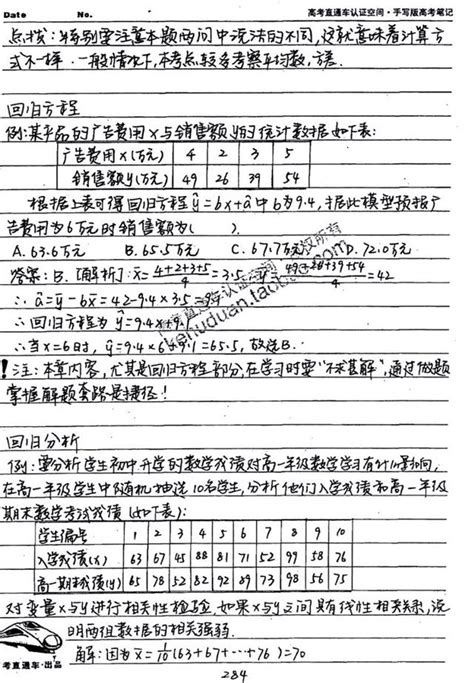 Date No. 高考直通车认证空间·手写版高考笔记
点拨：特别要注意本题两问中说法的不同，这就意味着计算方
式不一样．一般情况下，本考点较多考察平均数，方差．
回归方程
例:某产品的广告费用x与销售额y的统计数据如下表:
广告费用x(万元) 4 2 3 5
销售额y(万元) 49 26 39 54
根据上表可得回归方程ŷ=bx+â中b为9.4，据此模型预报广
告费用为6万元时销售额为( )
A. 63.6万元 B. 65.5万元 C. 67.7万元 D. 72.0万元
答案：B．[解析]x̄=4+2+3+5/4=3.5 ȳ=49+26+39+54/4=42
∴ â=ȳ-bx̄=42-9.4×3.5=9.1
∴ 回归方程为 ŷ=9.4x+9.1
∴当x=6时，ŷ=9.4×6+9.1=65.5，故选B．
！注：本章内容，尤其是回归方程部分，在学习时要“不求甚解”，通过做题
掌握解题套路是捷径！
回归分析
例：要分析学生初中升学的数学成绩对高一年级数学学习有什么影响，
在高一年级学生中随机抽选10名学生，分析他们入学成绩和高一年级
期末数学考试成绩(如下表)：
学生编号 1 2 3 4 5 6 7 8 9 10
入学成绩(x) 63 67 45 88 81 71 52 99 58 76
高一期末成绩(y) 65 78 52 82 92 89 73 98 56 75
对变量x与y进行相关性检验，如果x与y之间具有线性相关关系，说
明两组数据的相关强弱．
解：因为x̄=1/10(63+67+…+76)=70
考直通车·出品
284